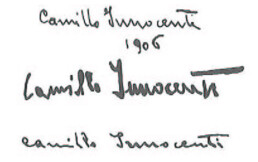 Camillo Innocenti
1906
Camillo Innocenti
Camillo Innocenti